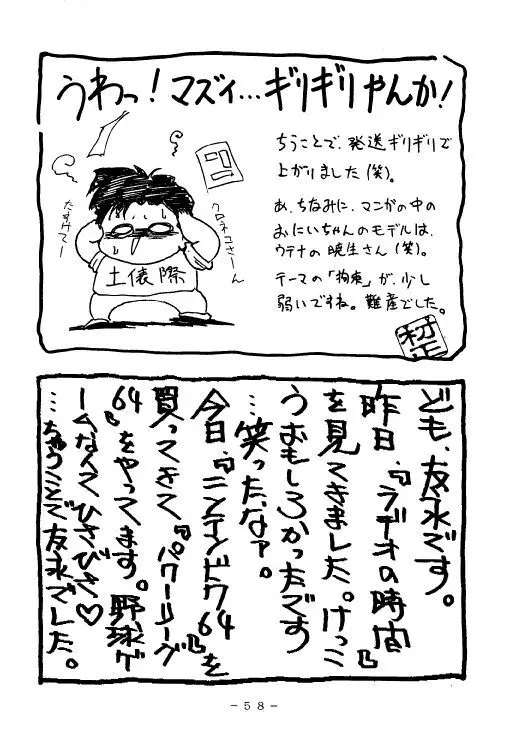 うわっ！マズイ…ギリギリやんか！
ちうことで、発送ギリギリで
上がりました(笑)。
あ、ちなみに、マンガの中の
おにいちゃんのモデルは、
ウテナの暁生さん(笑)。
テーマの「拘束」が、少し
弱いですね。難産でした。
たすけてー
クロネコさーん
土俵際
ども、友永です。
昨日、『ラヂオの時間』
を見てきました。けっこ
うおもしろかったです
…笑ったなァ。
今日、『ニンテンドウ64』を
買ってきて『パワーリーグ
64』をやってます。野球ゲ
ームなんてひさびさ♡
…ちゅうことで友永でした。
-58-